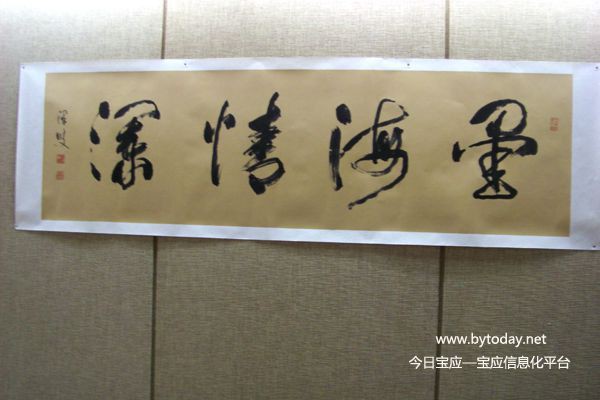 墨海情深
www.bytoday.net
今日宝应—宝应信息化平台